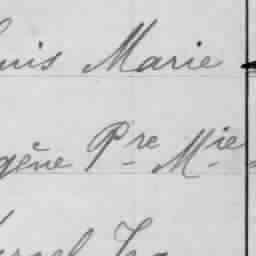 uis Marie
gène Pre Mie